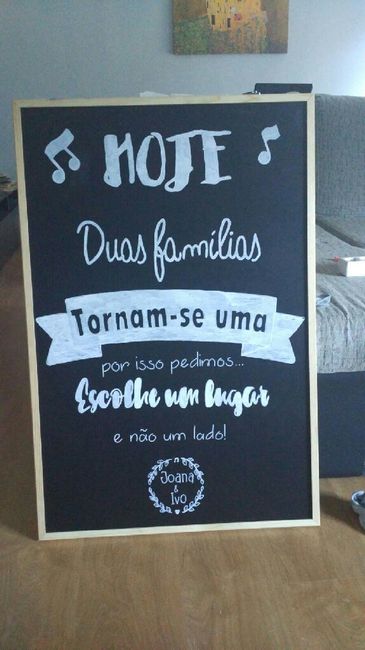 HOJE
Duas famílias
Tornam-se uma
por isso pedimos...
Escolhe um lugar
e não um lado!
Joana
&
Ivo